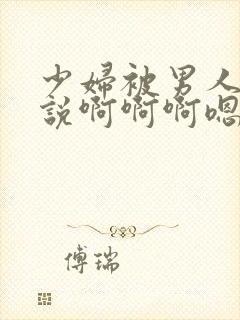 少婦被男人
說啊啊啊嗯
傅瑞